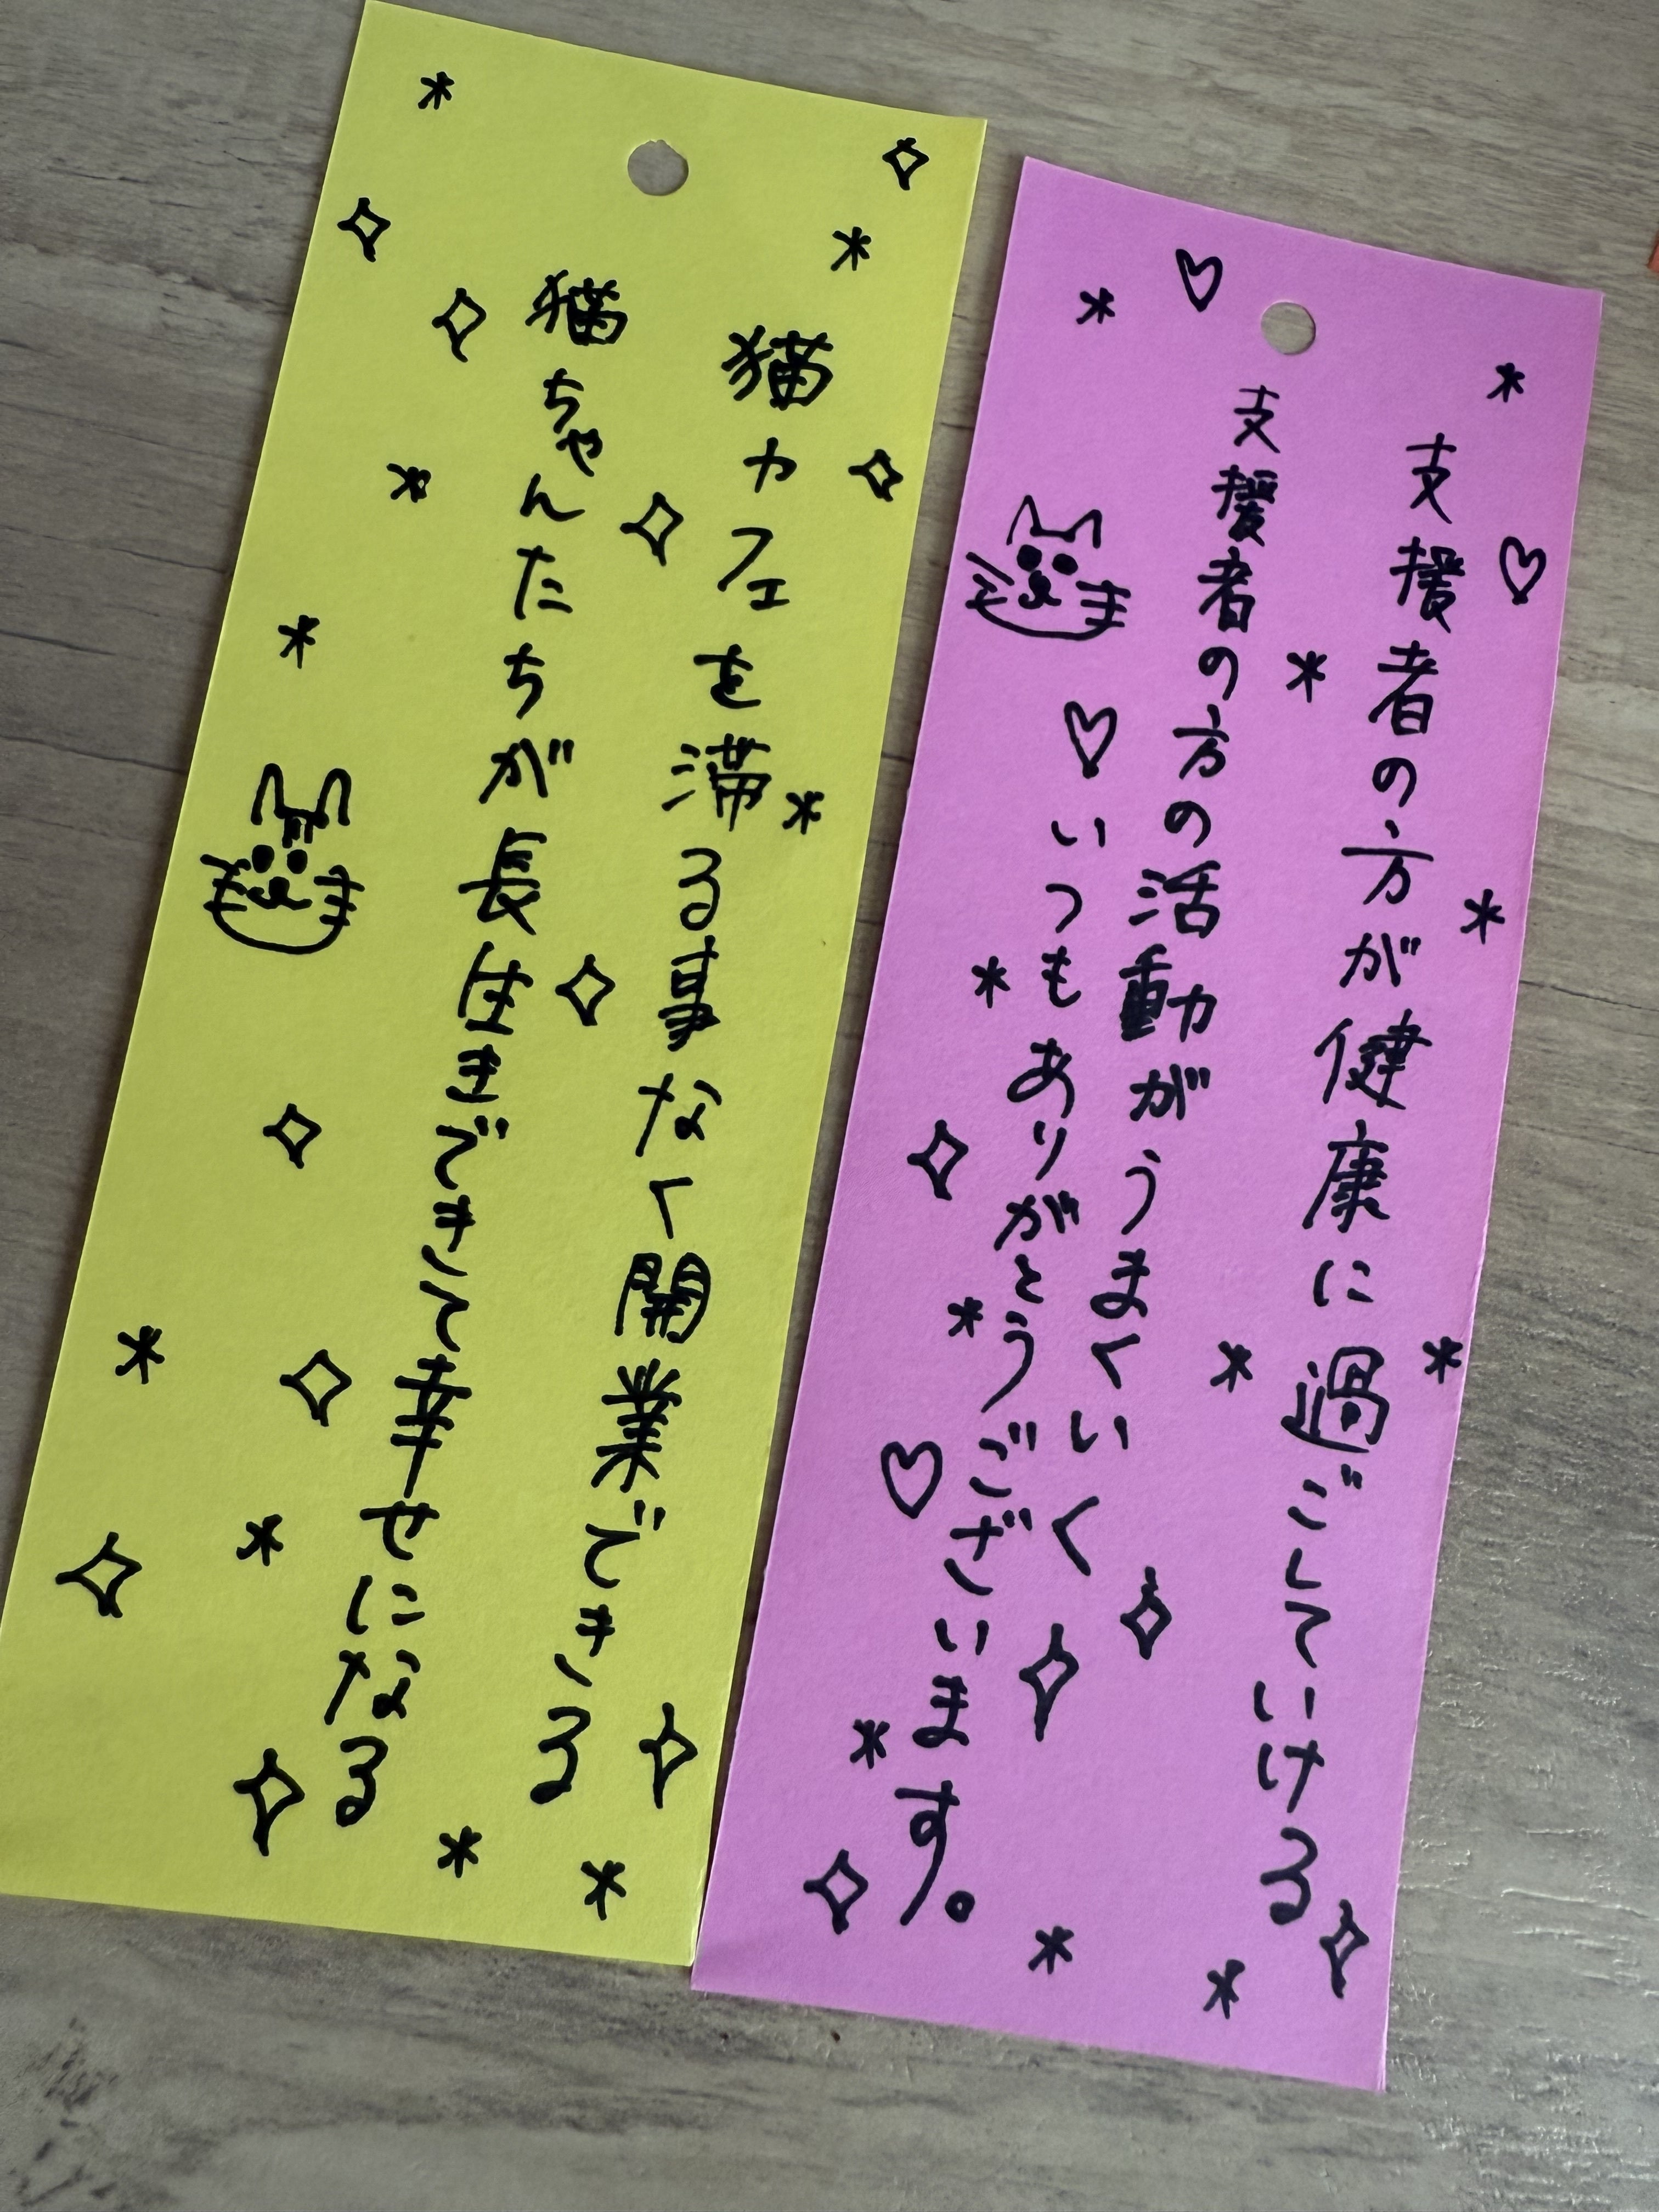 支援者の方が健康に過ごしていける
支援者の方の活動がうまくいく
いつもありがとうございます。
猫カフェを滞る事なく開業できる
猫ちゃんたちが長生きできて幸せになる